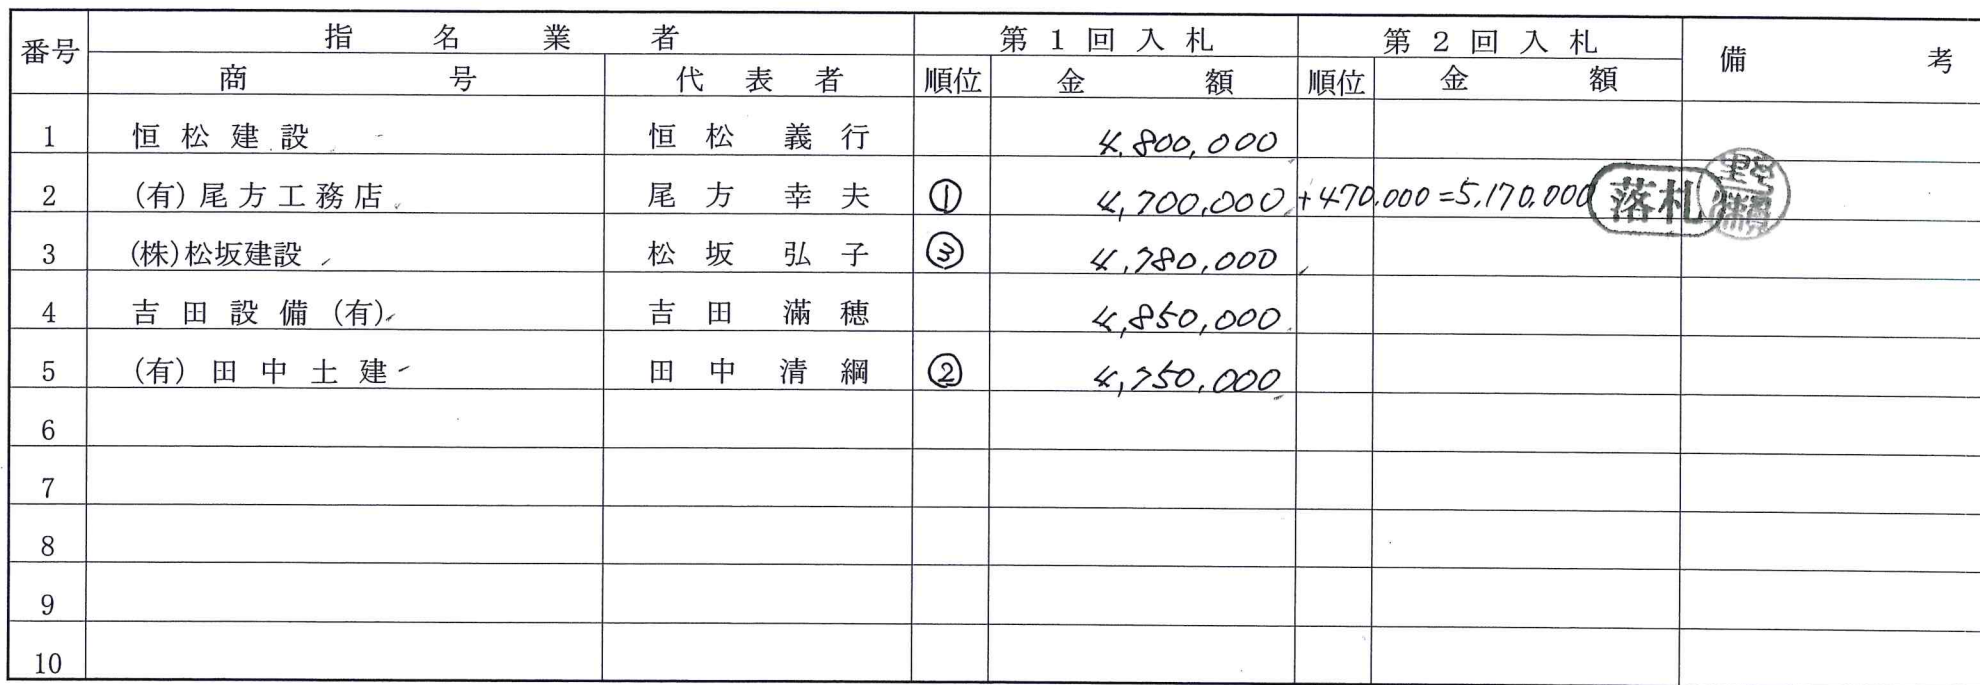 番号 指名業者 第1回入札 第2回入札 備考
商号 代表者 順位 金額 順位 金額
1 恒松建設 恒松義行 4,800,000
2 (有)尾方工務店 尾方幸夫 ① 4,700,000 +470,000=5,170,000 落札
3 (株)松坂建設 松坂弘子 ③ 4,780,000
4 吉田設備(有) 吉田滿穂 4,850,000
5 (有)田中土建 田中清綱 ② 4,750,000
6
7
8
9
10